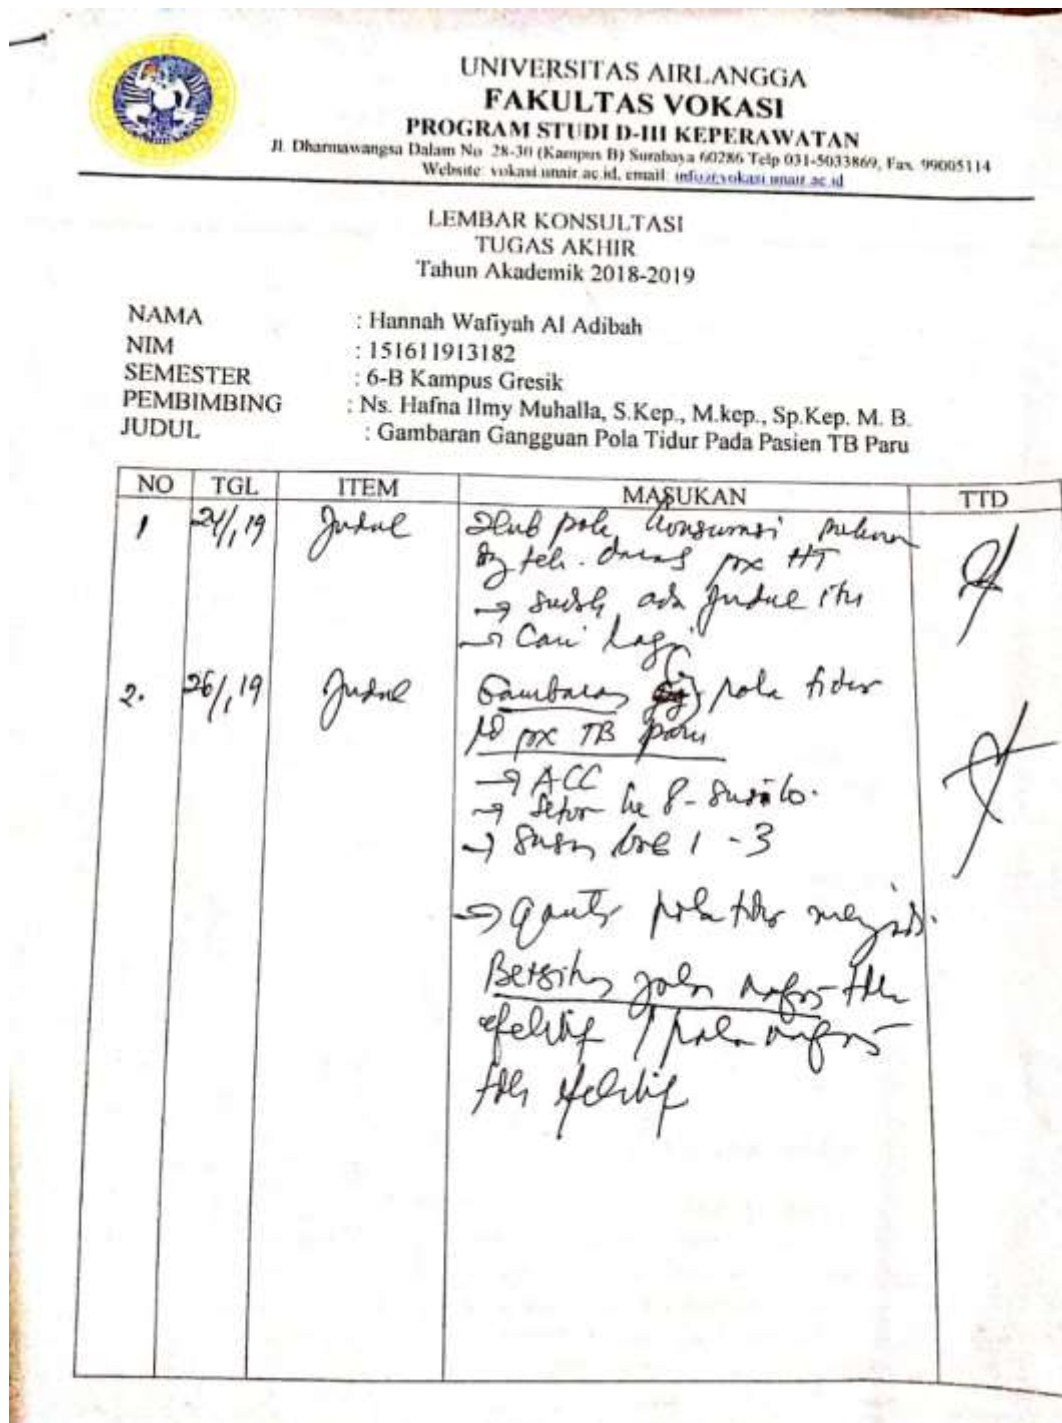 UNIVERSITAS AIRLANGGA
FAKULTAS VOKASI
PROGRAM STUDI D-III KEPERAWATAN
Jl. Dharmawangsa Dalam No. 28-30 (Kampus B) Surabaya 60286 Telp 031-5033869, Fax. 99005114
Website: vokasi.unair.ac.id, email: info@vokasi.unair.ac.id
LEMBAR KONSULTASI
TUGAS AKHIR
Tahun Akademik 2018-2019
NAMA : Hannah Wafiyah Al Adibah
NIM : 151611913182
SEMESTER : 6-B Kampus Gresik
PEMBIMBING : Ns. Hafna Ilmy Muhalla, S.Kep., M.kep., Sp.Kep. M. B.
JUDUL : Gambaran Gangguan Pola Tidur Pada Pasien TB Paru
NO TGL ITEM MASUKAN TTD
1 24/1 19 Judul Hub pola konsumsi
dg tek. darah px HT
→ sudah ada judul itu
→ Cari lagi
2. 26/1 19 Judul Gambaran pola tidur
px TB paru
→ ACC
→ Setor ke
→ Susun bab 1 - 3
→ ganti pola tdr menjadi
Bersihan jalan nafas tdk
efektif / pola nafas
tdk efektif